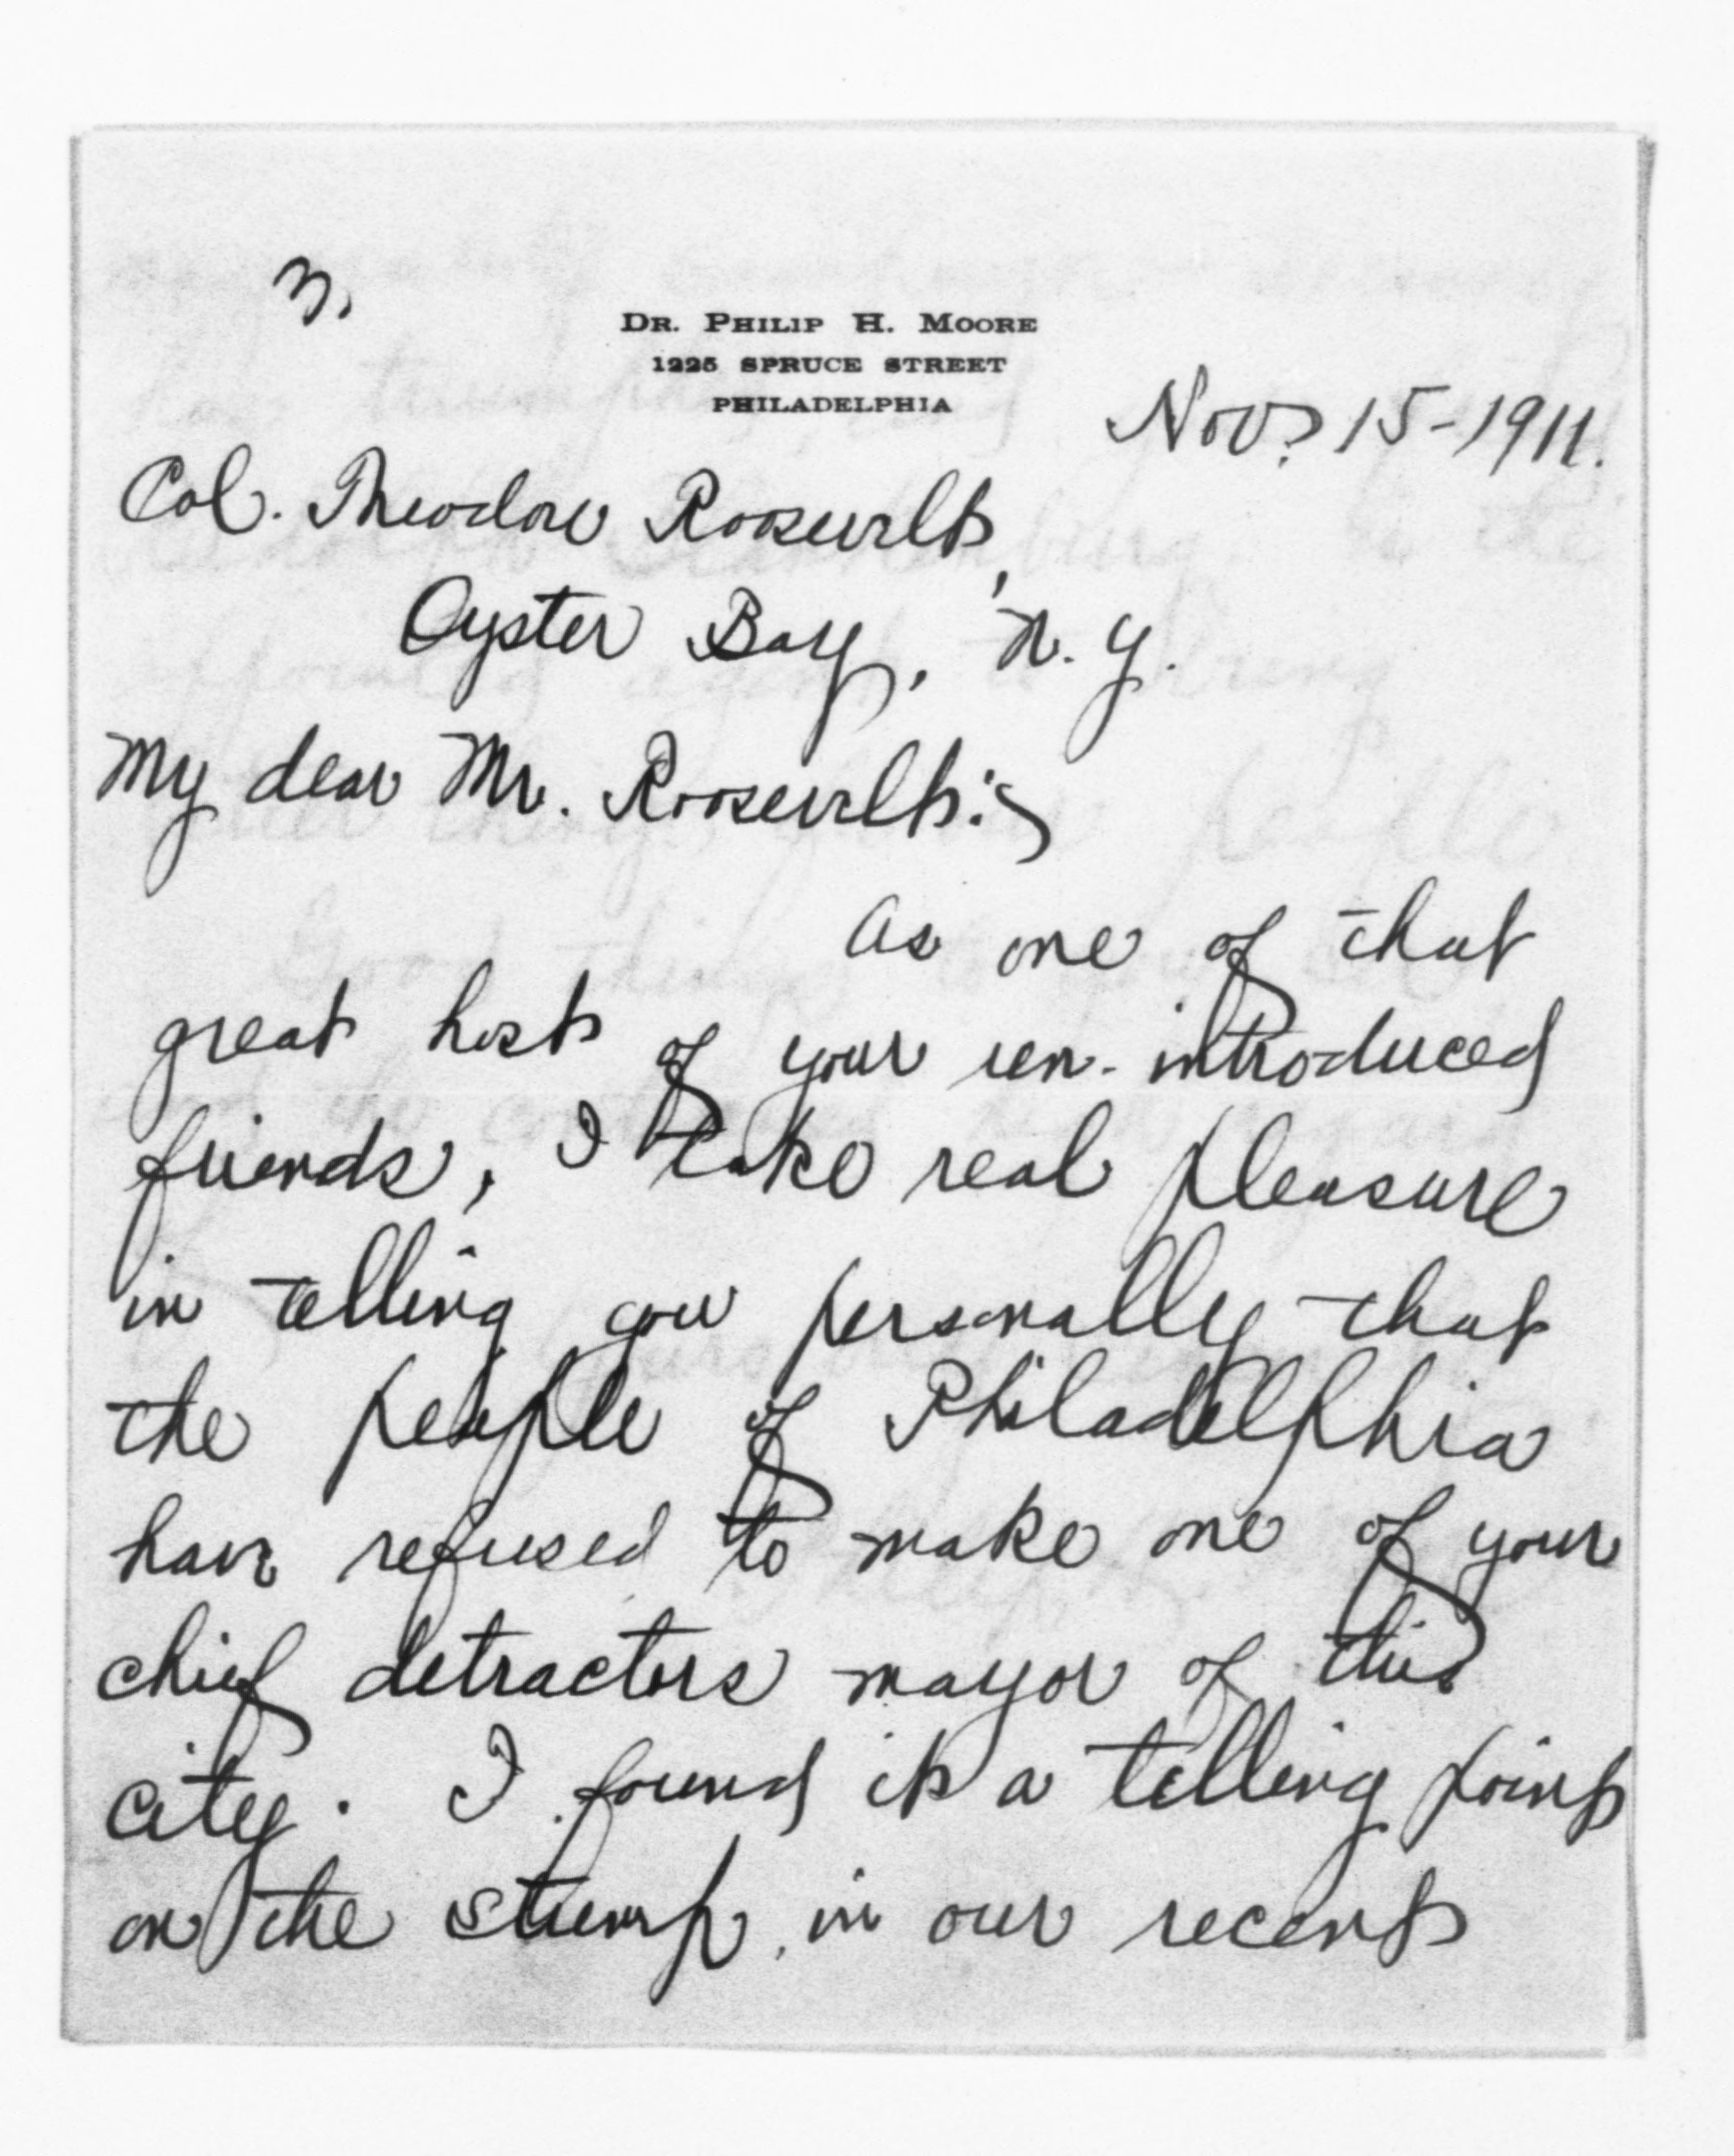 3.
DR. PHILIP H. MOORE
1225 SPRUCE STREET
PHILADELPHIA
Nov. 15-1911.
Col. Theodore Roosevelt,
Oyster Bay, N. Y.
My dear Mr. Roosevelt:
As one of that
great host of your un-introduced
friends, I take real pleasure
in telling you personally that
the people of Philadelphia
have refused to make one of your
chief detractors mayor of this
city. I found it a telling point
on the stump, in our recent